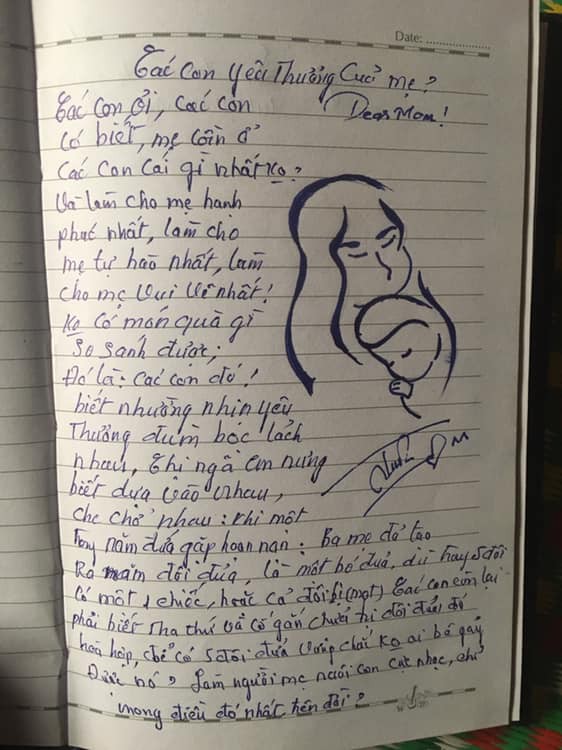 Date:
Các Con yêu Thưởng Cuả mẹ?
Các Con ỏi, các con
Dear Mom!
Có biết, mẹ cần ở
Các Con Cái gì nhất Ko?
Và làm cho mẹ hạnh
phúc nhất, làm cho
mẹ tự hào nhất, làm
Cho mẹ Vui Vẽ nhất!
Ko Có món quà gì
So Sánh được;
Đó là: Các con đó!
biết nhường nhịn yêu
Thưởng đùm bóc lách
nhau, Chị ngã em nưng
biết dựa vào nhau,
che chở nhau: Khi một
năm đứa gặp hoạn nạn: Ba mẹ đả tạo
Ra năm đôi đủa, là một bó đủa, dù hay 5 đôi
Có một 1 chiếc, hoặc Cả đôi bị (mọt) Các con còn lại
phải biết Tha thứ và cố gắn đôi đủa đó
hoà hợp, để có 5 đôi đủa vững chắi Ko ai bẻ gảy
Được nó? Làm người mẹ nuôi con cực nhọc, chỉ
mong điều đó nhất trên đời?